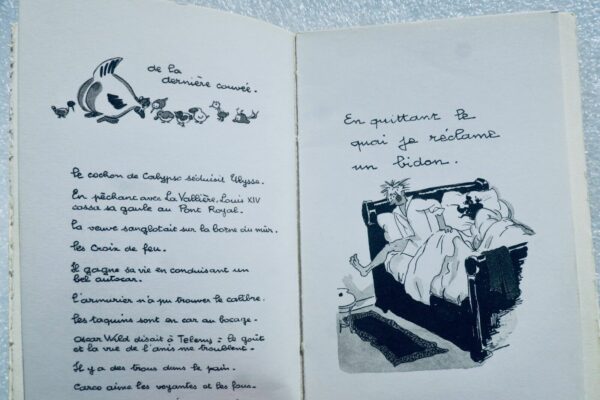 de la
dernière couvée.
Le cochon de Calypso séduisit Ulysse.
En pêchant avec La Vallière, Louis XIV
cassa sa gaule au Pont Royal.
La veuve sanglotait sur la borne du mur.
Les Croix de feu.
Il gagne sa vie en conduisant un
bel autocar.
L'armurier n'a pu trouver le calibre.
Les taquins sont en car au bocage.
Oscar Wild disait à Teleny : le goût
et la vue de l'anis me troublent.
Il y a des trous dans le pain.
Carco aime les voyantes et les fous-
En quittant le
quai je réclame
un bidon.